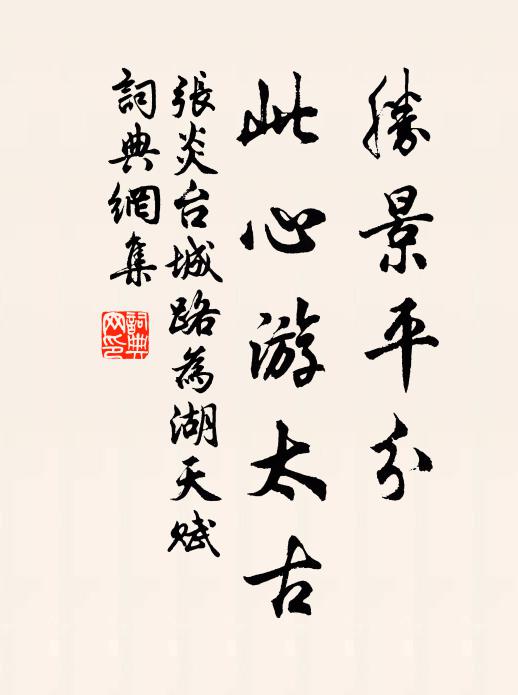 勝景平分
此心游太古
張炎台城路為湖天賦
詞典網集
詞典
网印